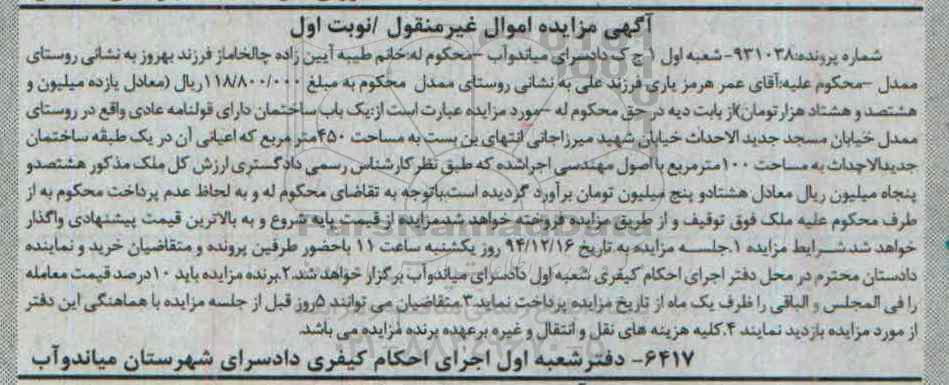 آگهی مزایده اموال غیرمنقول /نوبت اول
شماره پرونده:۹۳۱۰۳۸-شعبه اول اج ک دادسرای میاندوآب -محکوم له:خانم طیبه آیین زاده چالخاماز فرزند بهروز به نشانی روستای
ممدل -محکوم علیه:آقای عمر هرمز یاری فرزند علی به نشانی روستای ممدل محکوم به مبلغ ۱۱۸/۸۰۰/۰۰۰ریال (معادل یازده میلیون و
هشتصد و هشتاد هزار تومان)از بابت دیه در حق محکوم له -مورد مزایده عبارت است از:یک باب ساختمان دارای قولنامه عادی واقع در روستای
ممدل خیابان مسجد جدید الاحداث خیابان شهید میرزاجانی انتهای بن بست به مساحت ۴۵۰مترمربع که اعیانی آن در یک طبقه ساختمان
جدیدالاحداث به مساحت ۱۰۰مترمربع با اصول مهندسی اجراشده که طبق نظر کارشناس رسمی دادگستری ارزش کل ملک مذکور هشتصدو
پنجاه میلیون ریال معادل هشتادو پنج میلیون تومان برآورد گردیده است.باتوجه به تقاضای محکوم له و به لحاظ عدم پرداخت محکوم به از
طرف محکوم علیه ملک فوق توقیف و از طریق مزایده فروخته خواهد شد.مزایده از قیمت پایه شروع و به بالاترین قیمت پیشنهادی واگذار
خواهد شد.شرایط مزایده ۱.جلسه مزایده به تاریخ ۹۴/۱۲/۱۶ روز یکشنبه ساعت ۱۱ باحضور طرفین پرونده و متقاضیان خرید و نماینده
دادستان محترم در محل دفتر اجرای احکام کیفری شعبه اول دادسرای میاندوآب برگزار خواهد شد.۲.برنده مزایده باید ۱۰درصد قیمت معامله
را فی المجلس و الباقی را ظرف یک ماه از تاریخ مزایده پرداخت نماید.۳.متقاضیان می توانند ۵روز قبل از جلسه مزایده با هماهنگی این دفتر
از مورد مزایده بازدید نمایند ۴.کلیه هزینه های نقل و انتقال و غیره برعهده برنده مزایده می باشد.
۶۴۱۷- دفترشعبه اول اجرای احکام کیفری دادسرای شهرستان میاندوآب